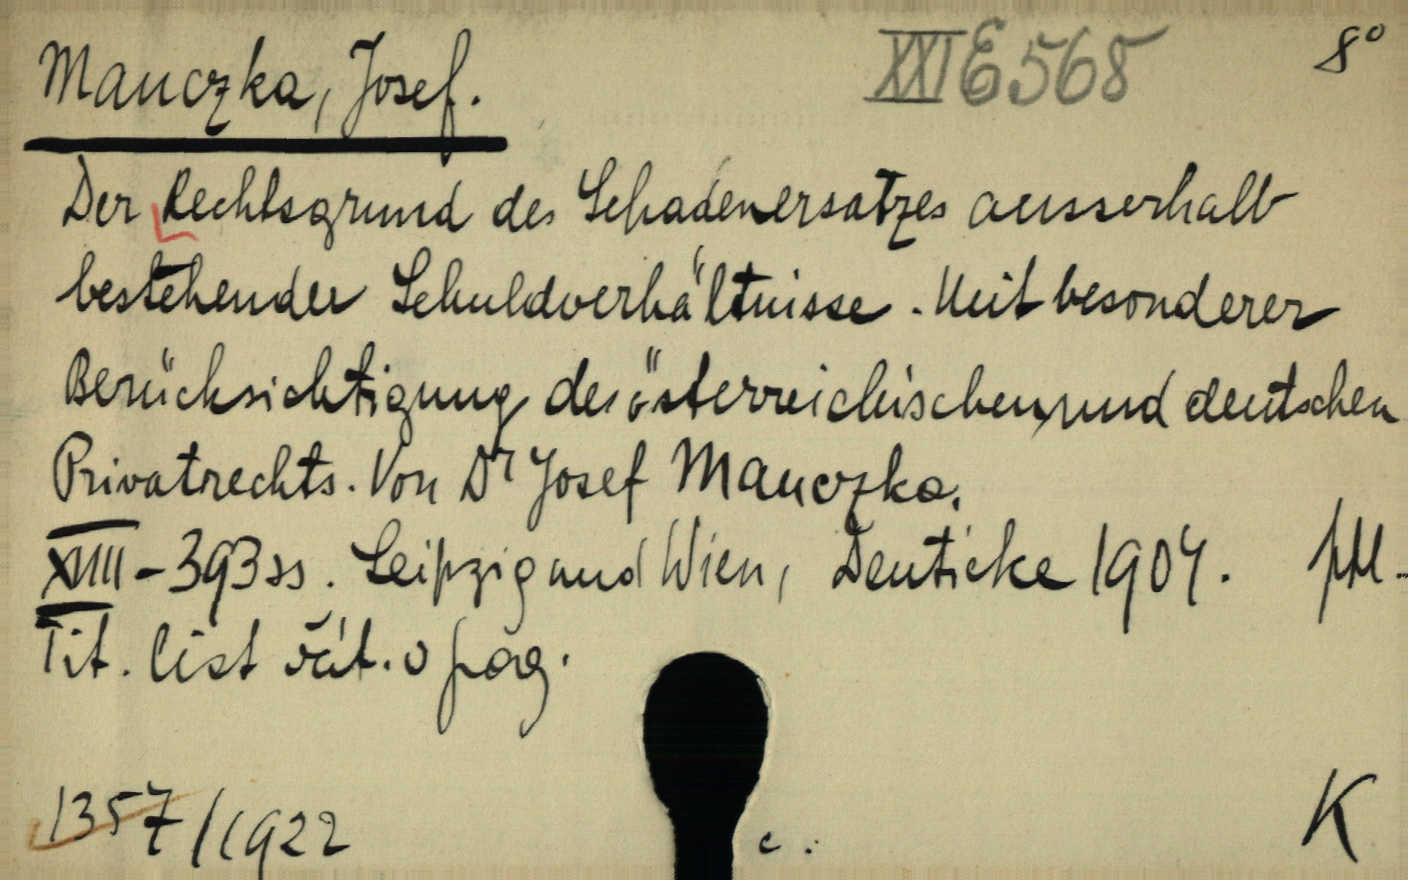 Mauczka, Josef. XXI E 568 8°
Der Rechtsgrund des Schadenersatzes ausserhalb
bestehender Schuldverhältnisse. Mit besonderer
Berücksichtigung des österreichischen und deutschen
Privatrechts. Von Dr Josef Mauczka.
XIII - 393 ss. Leipzig und Wien, Deuticke 1904.
Tit. list vět. o pag.
1357/1922 c. K